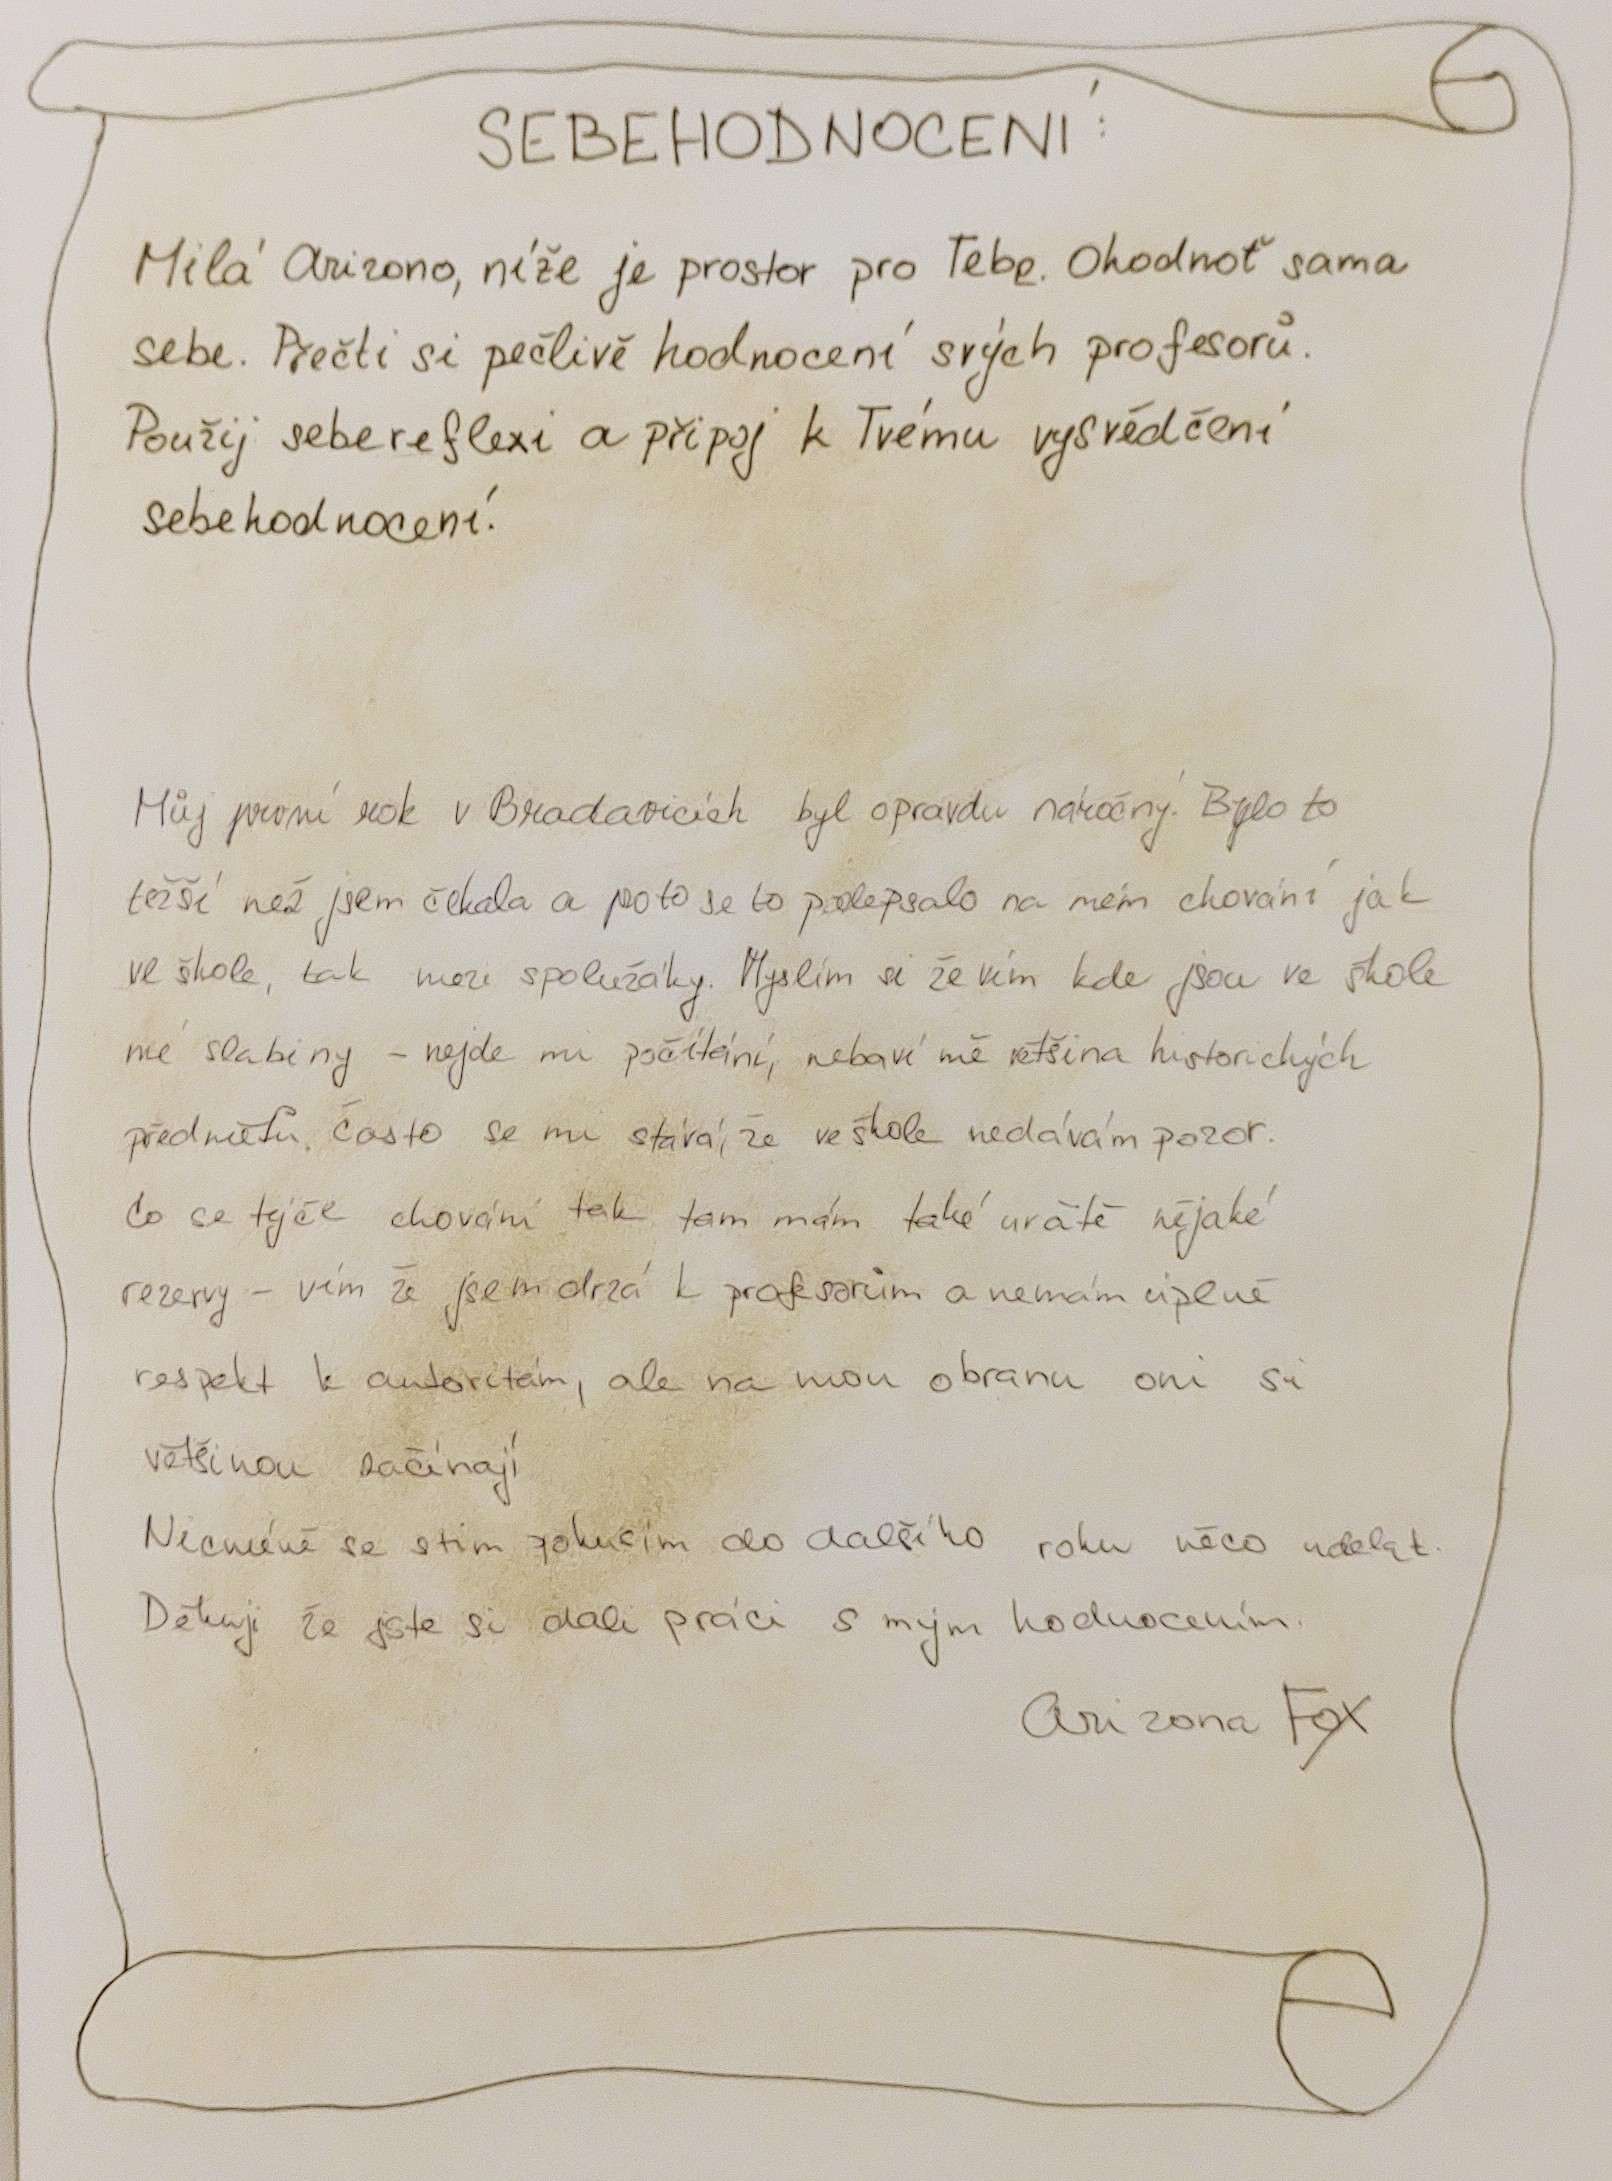 SEBEHODNOCENÍ:
Milá Arizono, níže je prostor pro Tebe. Ohodnoť sama
sebe. Přečti si pečlivě hodnocení svých profesorů.
Použij sebereflexi a připoj k Tvému vysvědčení
sebehodnocení.
Můj první rok v Bradavicích byl opravdu náročný. Bylo to
težší než jsem čekala a proto se to podepsalo na mém chování jak
ve škole, tak mezi spolužáky. Myslím si že vím kde jsou ve škole
mé slabiny – nejde mi počítání, nebaví mě většina historických
předmětů. Často se mi stává, že ve škole nedávám pozor.
Co se týče chování tak tam mám také určitě nějaké
rezervy – vím že jsem drzá k profesorům a nemám úplně
respekt k autoritám, ale na mou obranu oni si
většinou začínají
Nicméně se stím pokusím do dalšího roku něco udělat.
Děkuji že jste si dali práci s mým hodnocením.
Arizona Fox